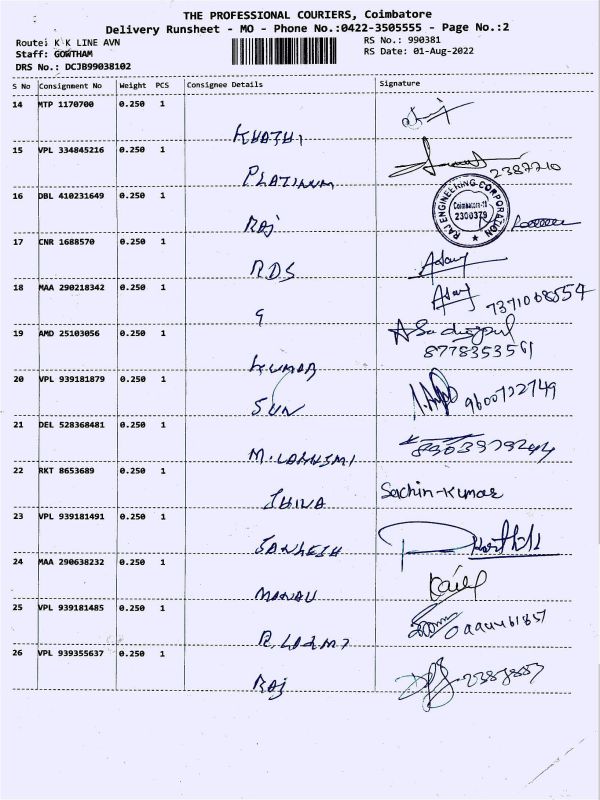 THE PROFESSIONAL COURIERS, Coimbatore
Delivery Runsheet - MO - Phone No.:0422-3505555 - Page No.:2
Route: K K LINE AVN
RS No.: 990381
Staff: GOWTHAM
RS Date: 01-Aug-2022
DRS No.: DCJB99038102
S No Consignment No Weight PCS Consignee Details Signature
14 MTP 1170700 0.250 1
15 VPL 334845216 0.250 1
PLATINUM 2387210
16 DBL 410231649 0.250 1
RAJ ENGINEERING CORPORATION
Coimbatore-11
2300379
Raj
17 CNR 1688570 0.250 1
RDS
18 MAA 290218342 0.250 1
9 7371068554
19 AMD 25103056 0.250 1
8778353561
KUMAR
20 VPL 939181879 0.250 1
SUN 9600722749
21 DEL 528368481 0.250 1
22 RKT 8653689 0.250 1
SHIVA Sachin-Kumar
23 VPL 939181491 0.250 1
Karthik
24 MAA 290638232 0.250 1
25 VPL 939181485 0.250 1
26 VPL 939355637 0.250 1
Raj